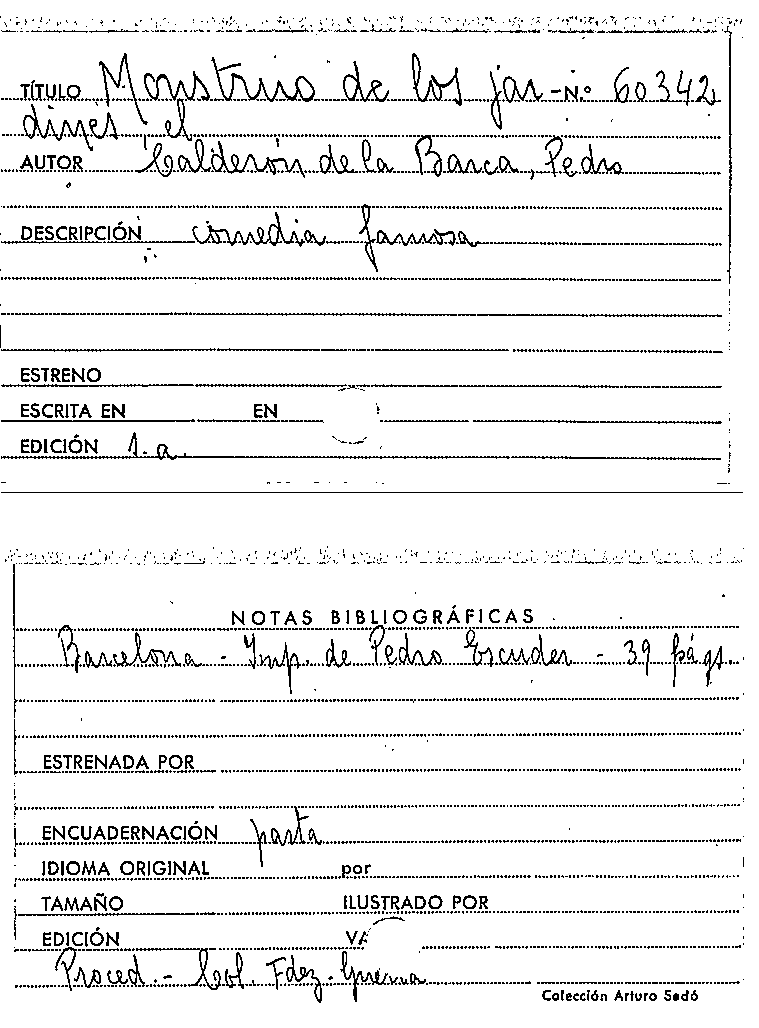 TÍTULO Monstruo de los jar- N.º 60342
dines, el
AUTOR Calderón de la Barca, Pedro
DESCRIPCIÓN comedia famosa
ESTRENO
ESCRITA EN EN
EDICIÓN 1.a
NOTAS BIBLIOGRÁFICAS
Barcelona - Imp. de Pedro Escuder - 39 págs.
ESTRENADA POR
ENCUADERNACIÓN pasta
IDIOMA ORIGINAL por
TAMAÑO ILUSTRADO POR
EDICIÓN VA
Proced.- Col. Fdez-Guerra
Colección Arturo Sedó